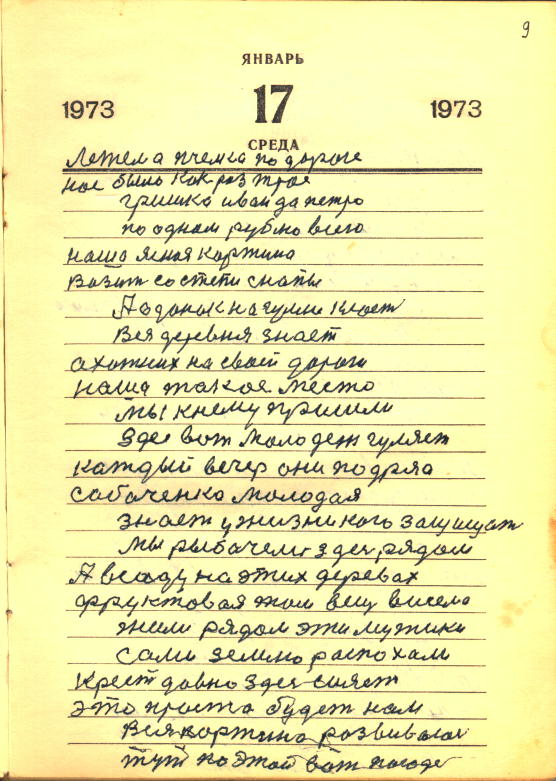 9
ЯНВАРЬ
1973 17 1973
СРЕДА
Летела пчелка по дороге
нас было как раз трое
гришка иван да петро
по одном рублю всего
наша ясная картина
возит со степи снопы
А на гумне
Вся деревня знает
ахотник на своей дороги
наша такое место
мы к нему пришли
здес вот молодеж гуляет
каждый вечер они подряд
собаченка молодая
знает у жизни кого защищат
мы рыбачем здес рядом
А всаду на этих деревах
фруктовая там вещ висела
жили рядом эти мужики
сами землю распохали
Крест давно здес сияет
это проста будет нам
Вся картина
тут по этой вот погоде